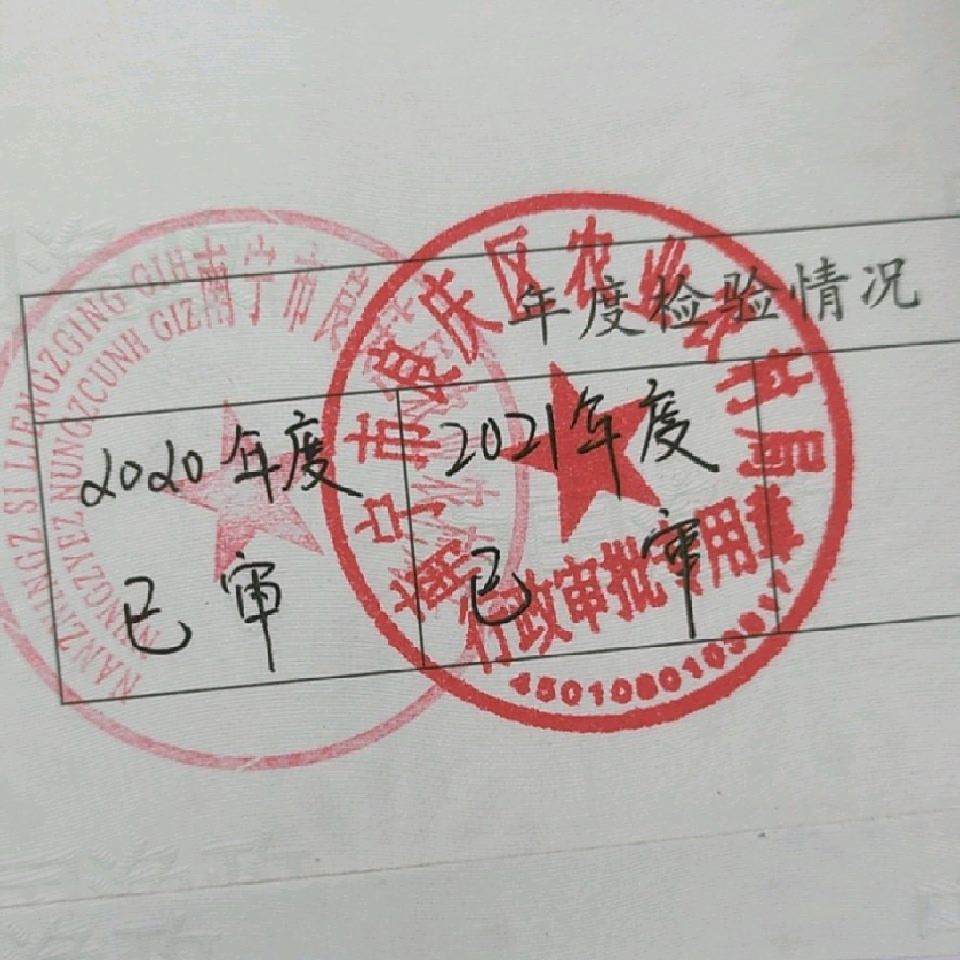 年度检验情况
2020年度
已审
2021年度
已审
NANZNINGZ SI LIENGZGING GIH
NUNGZYEZ NUNGZCUNH GIZ
南宁市良庆区农业农村局
行政审批专用章